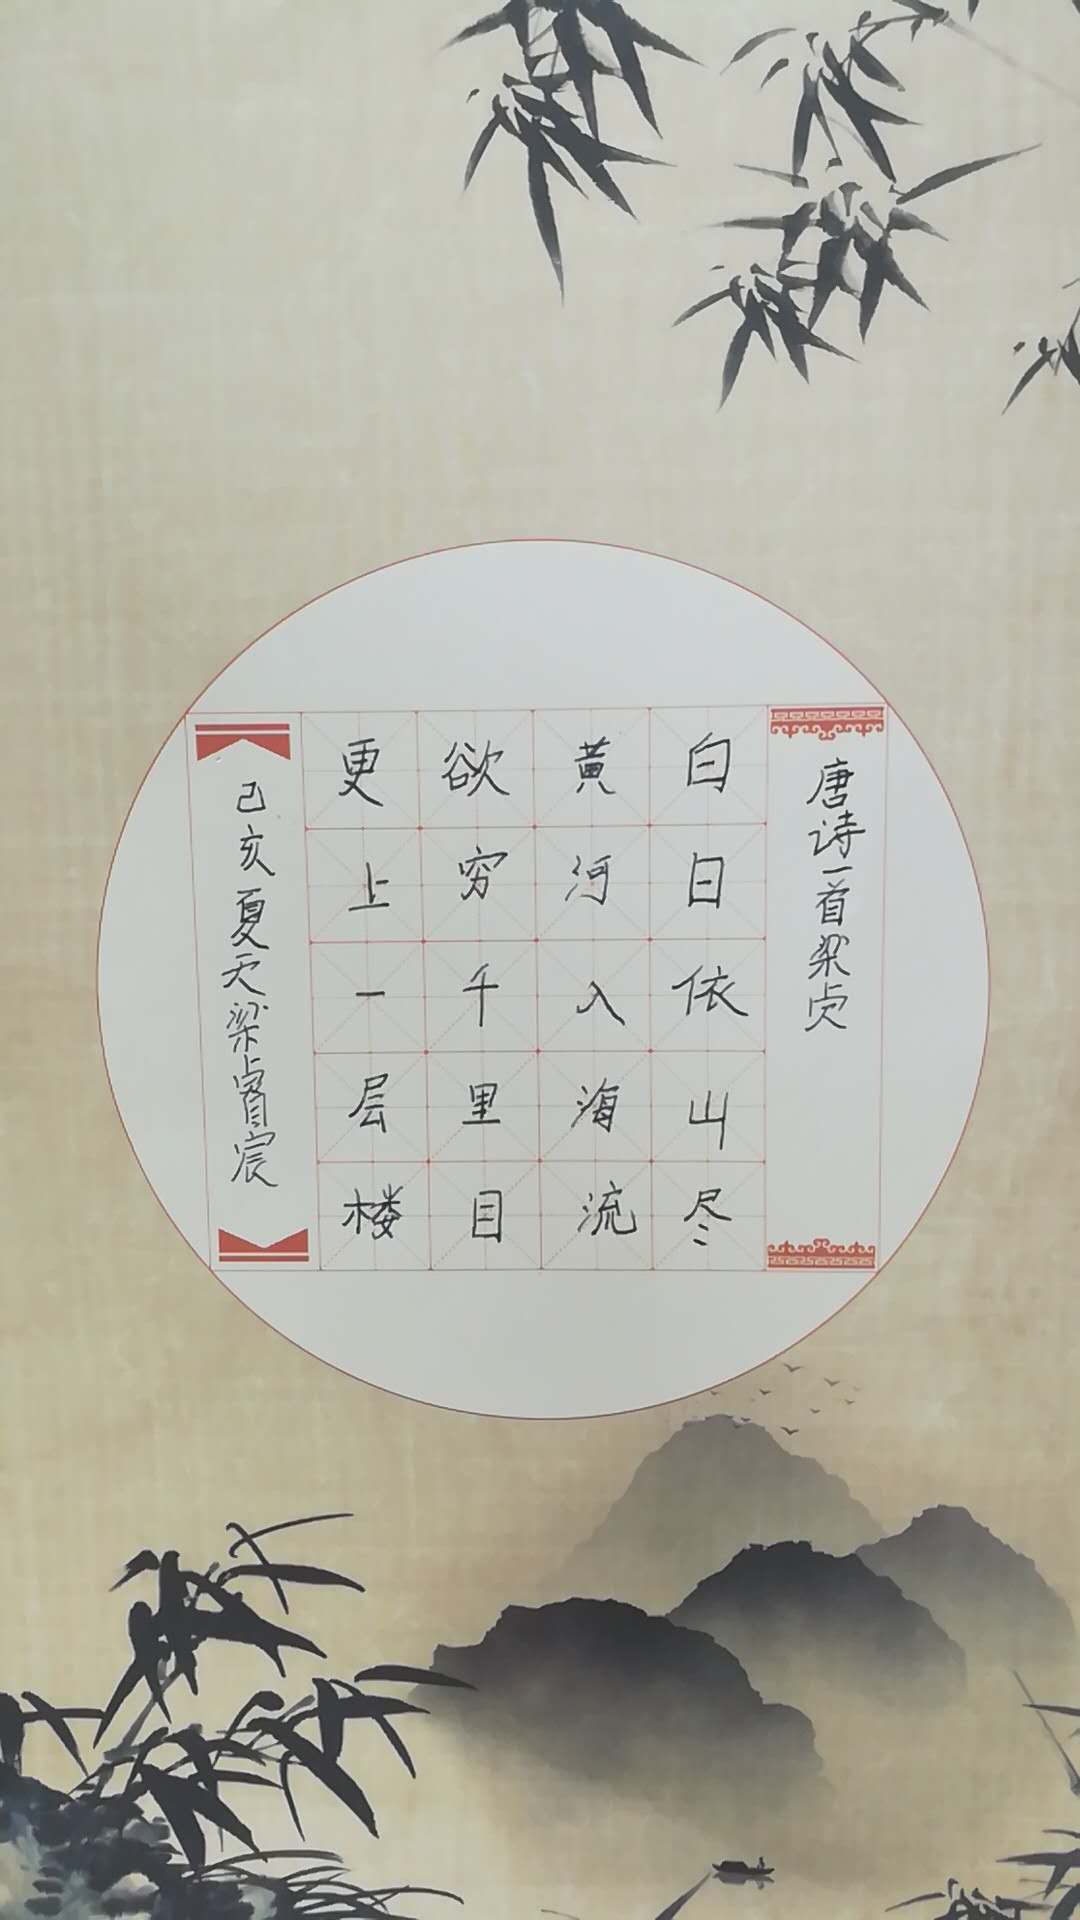 唐诗一首梁贞
白日依山尽
黄河入海流
欲穷千里目
更上一层楼
己亥夏天梁睿宸